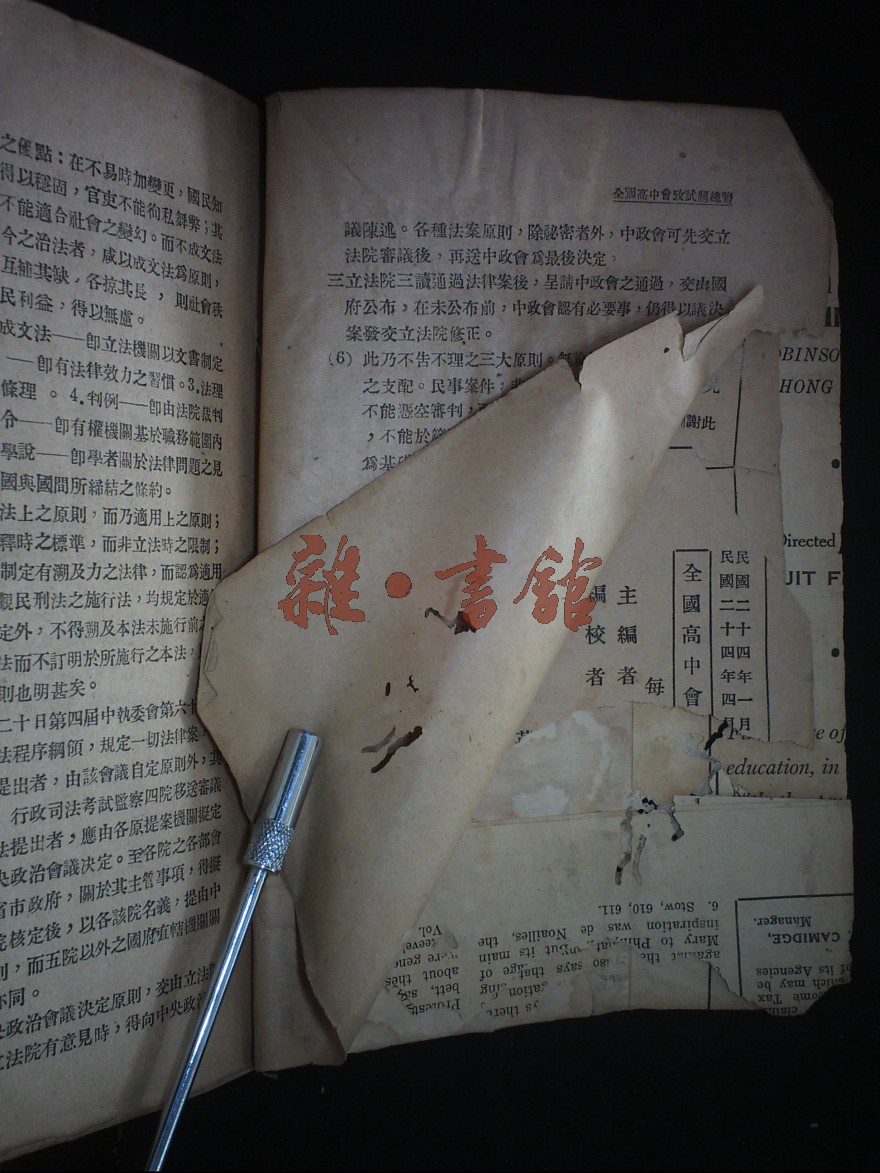 全國高中會攷試題總覽
議陳述。各種法案原則,除祕密者外,中政會可先交立
法院審議後,再送中政會爲最後決定。
三立法院三讀通過法律案後,呈請中政會之通過,交由國
府公布,在未公布前,中政會認有必要事,仍得以議決
案發交立法院修正。
(6) 此乃不告不理之三大原則。無論
之支配。民事案件:非
不能憑空審判,
,不能於第
爲基礎
之優點:在不易時加變更,國民知
得以穩固,官吏不能徇私舞弊;其
不能適合社會之變幻。而不成文法
今之治法者,咸以成文法爲原則,
互補其缺,各掠其長,則社會秩
民利益,得以無慮。
成文法——卽立法機關以文書制定
——卽有法律效力之習慣。3.法理
條理。4.判例——卽由法院裁判
令——卽有權機關基於職務範圍內
學說——卽學者關於法律問題之見
國與國間所締結之條約。
法上之原則,而乃適用上之原則;
釋時之標準,而非立法時之限制;
制定有溯及力之法律,而認爲適用
觀民刑法之施行法,均規定於適
定外,不得溯及本法未施行前之
法而不訂明於所施行之本法,
則也明甚矣。
二十日第四屆中執委會第六十
法程序綱領,規定一切法律案,
提出者,由該會議自定原則外,其
行政司法考試監察四院移送審議
法提出者,應由各原提案機關擬定
央政治會議決定。至各院之各部會
省市政府,關於其主管事項,得擬
院核定後,以各該院名義,提由中
則,而五院以外之國府直轄機關關
亦同。
央政治會議決定原則,交由立法
立法院有意見時,得向中央政治
雜·書館
民國二十四年一月
民國二十四年四月
全國高中會
主編者
編校者
每
此謝
OBINSO
HONG
Directed
UIT F
education, in
6. Stow, 610, 611.
inspiration was de Noailles, the
Mary to Phil
against
CAMIDGE,
Manager.
of its Agencies
which may be
come Tax